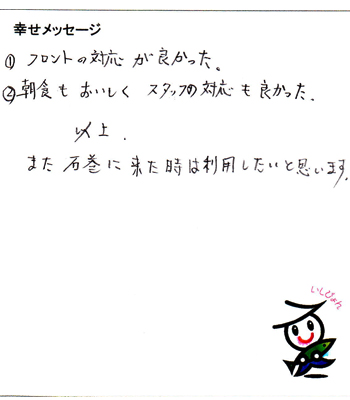 幸せメッセージ
① フロントの対応 が 良かった。
② 朝食も おいしく スタッフの対応 も 良かった.
以上.
また 石巻に 来た 時は利用したいと思います.
いしぴょん